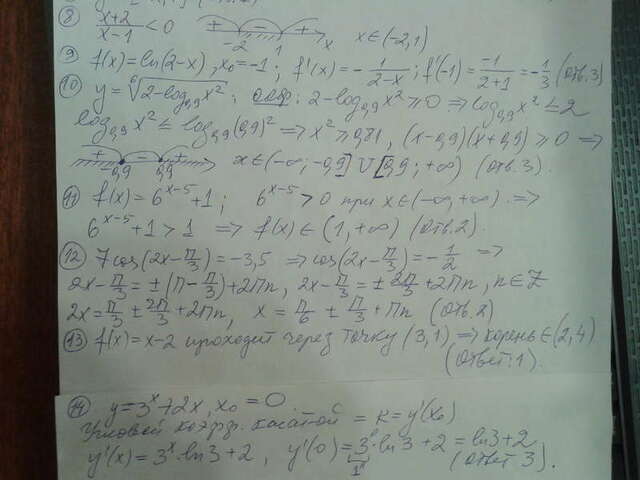 ⑧ (x+2)/(x-1) < 0   + - +   -2   1   x   x∈(-2,1)
⑨ f(x)=ln(2-x), x₀=-1; f'(x)=-1/(2-x); f'(-1)=-1/(2+1)=-1/3 (Отв.3)
⑩ y=⁶√(2-log₀,₉x²); ООФ: 2-log₀,₉x²≥0 ⇒ log₀,₉x²≤2
log₀,₉x² ≤ log₀,₉(0,9)² ⇒ x²≥0,81, (x-0,9)(x+0,9)≥0 ⇒
+ - +   -0,9   0,9   x∈(-∞;-0,9]∪[0,9;+∞) (Отв.3).
⑪ f(x)=6^(x-5)+1; 6^(x-5)>0 при x∈(-∞,+∞). ⇒
6^(x-5)+1>1 ⇒ f(x)∈(1,+∞) (Отв.2).
⑫ 7cos(2x-π/3)=-3,5 ⇒ cos(2x-π/3)=-1/2 ⇒
2x-π/3=±(π-π/3)+2πn, 2x-π/3=±2π/3+2πn, n∈Z
2x=π/3±2π/3+2πn, x=π/6±π/3+πn (Отв.2)
⑬ f(x)=x-2 проходит через точку (3,1) ⇒ корень∈(2,4)
(Ответ:1).
⑭ y=3ˣ+2x, x₀=0
Угловой коэфф. касат-ой = k=y'(x₀)
y'(x)=3ˣ·ln3+2, y'(0)=3⁰·ln3+2=ln3+2
1   (Ответ 3).